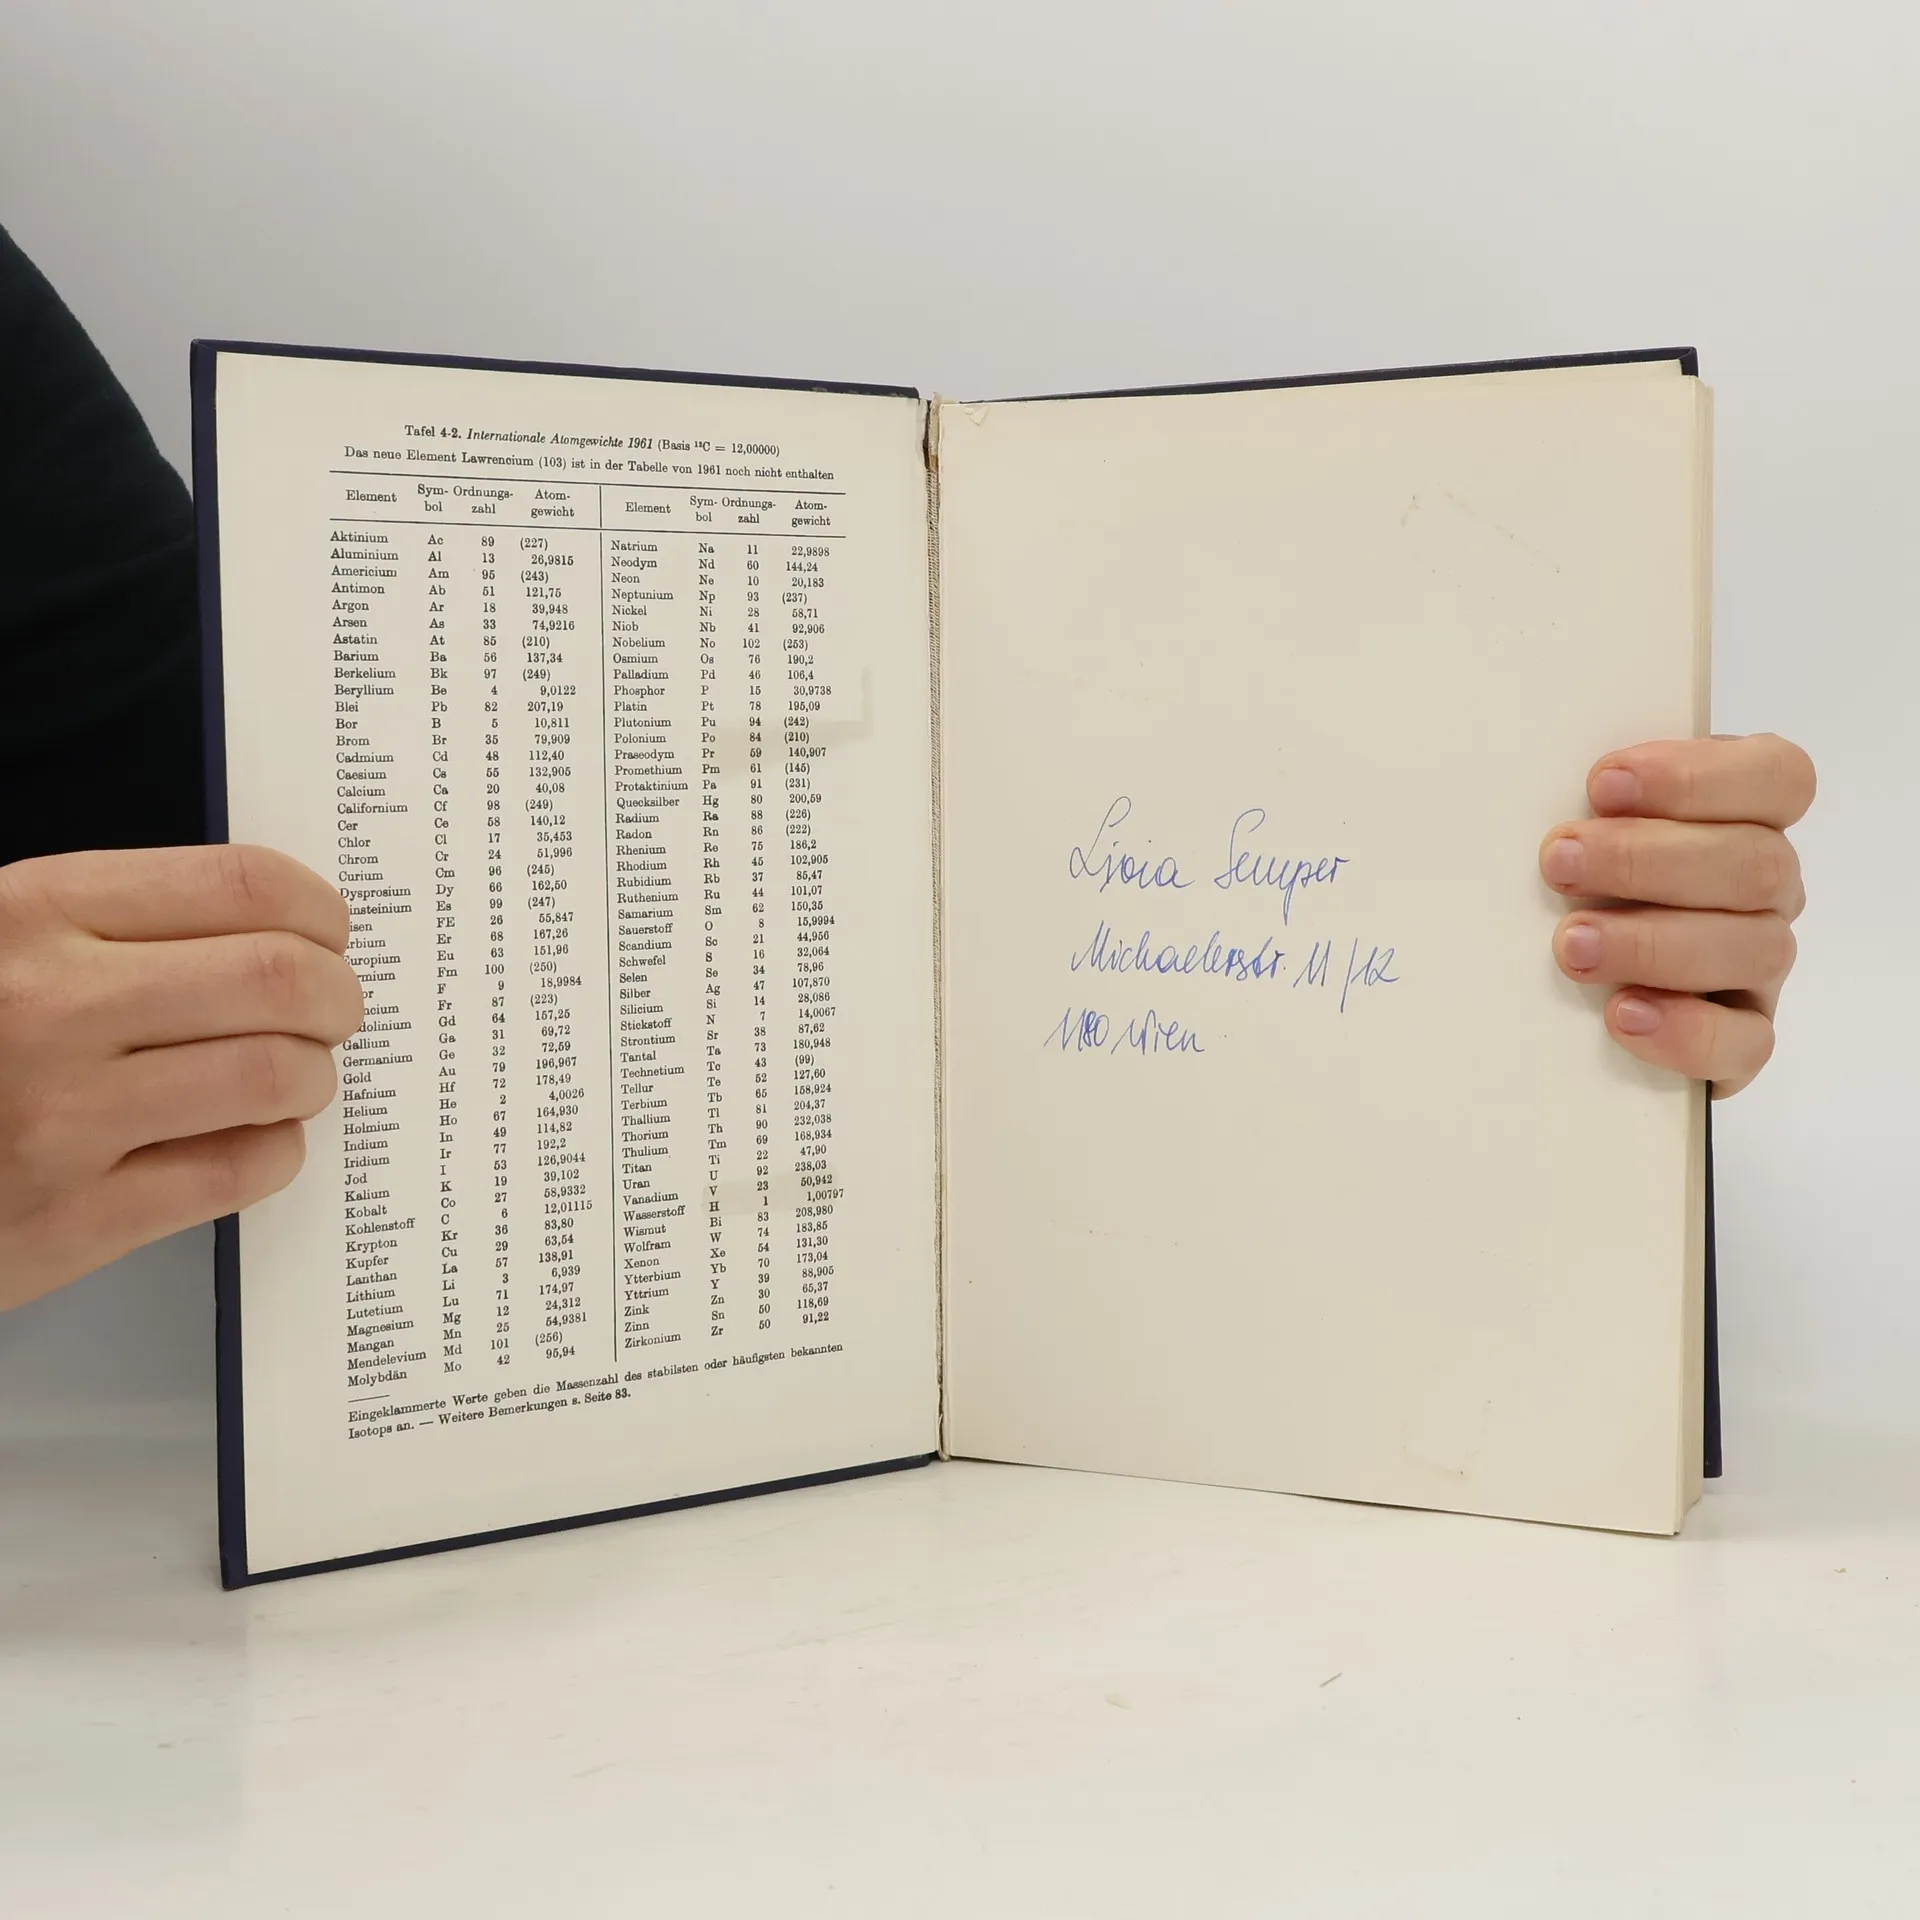 Tafel 4-2. Internationale Atomgewichte 1961 (Basis ¹²C = 12,00000)
Das neue Element Lawrencium (103) ist in der Tabelle von 1961 noch nicht enthalten
Element Sym- Ordnungs- Atom-
bol zahl gewicht
Aktinium Ac 89 (227)
Aluminium Al 13 26,9815
Americium Am 95 (243)
Antimon Ab 51 121,75
Argon Ar 18 39,948
Arsen As 33 74,9216
Astatin At 85 (210)
Barium Ba 56 137,34
Berkelium Bk 97 (249)
Beryllium Be 4 9,0122
Blei Pb 82 207,19
Bor B 5 10,811
Brom Br 35 79,909
Cadmium Cd 48 112,40
Caesium Cs 55 132,905
Calcium Ca 20 40,08
Californium Cf 98 (249)
Cer Ce 58 140,12
Chlor Cl 17 35,453
Chrom Cr 24 51,996
Curium Cm 96 (245)
Dysprosium Dy 66 162,50
insteinium Es 99 (247)
isen FE 26 55,847
rbium Er 68 167,26
Europium Eu 63 151,96
rmium Fm 100 (250)
or F 9 18,9984
ncium Fr 87 (223)
dolinium Gd 64 157,25
Gallium Ga 31 69,72
Germanium Ge 32 72,59
Gold Au 79 196,967
Hafnium Hf 72 178,49
Helium He 2 4,0026
Holmium Ho 67 164,930
Indium In 49 114,82
Iridium Ir 77 192,2
Jod I 53 126,9044
Kalium K 19 39,102
Kobalt Co 27 58,9332
Kohlenstoff C 6 12,01115
Krypton Kr 36 83,80
Kupfer Cu 29 63,54
Lanthan La 57 138,91
Lithium Li 3 6,939
Lutetium Lu 71 174,97
Magnesium Mg 12 24,312
Mangan Mn 25 54,9381
Mendelevium Md 101 (256)
Molybdän Mo 42 95,94
Element Sym- Ordnungs- Atom-
bol zahl gewicht
Natrium Na 11 22,9898
Neodym Nd 60 144,24
Neon Ne 10 20,183
Neptunium Np 93 (237)
Nickel Ni 28 58,71
Niob Nb 41 92,906
Nobelium No 102 (253)
Osmium Os 76 190,2
Palladium Pd 46 106,4
Phosphor P 15 30,9738
Platin Pt 78 195,09
Plutonium Pu 94 (242)
Polonium Po 84 (210)
Praseodym Pr 59 140,907
Promethium Pm 61 (145)
Protaktinium Pa 91 (231)
Quecksilber Hg 80 200,59
Radium Ra 88 (226)
Radon Rn 86 (222)
Rhenium Re 75 186,2
Rhodium Rh 45 102,905
Rubidium Rb 37 85,47
Ruthenium Ru 44 101,07
Samarium Sm 62 150,35
Sauerstoff O 8 15,9994
Scandium Sc 21 44,956
Schwefel S 16 32,064
Selen Se 34 78,96
Silber Ag 47 107,870
Silicium Si 14 28,086
Stickstoff N 7 14,0067
Strontium Sr 38 87,62
Tantal Ta 73 180,948
Technetium Tc 43 (99)
Tellur Te 52 127,60
Terbium Tb 65 158,924
Thallium Tl 81 204,37
Thorium Th 90 232,038
Thulium Tm 69 168,934
Titan Ti 22 47,90
Uran U 92 238,03
Vanadium V 23 50,942
Wasserstoff H 1 1,00797
Wismut Bi 83 208,980
Wolfram W 74 183,85
Xenon Xe 54 131,30
Ytterbium Yb 70 173,04
Yttrium Y 39 88,905
Zink Zn 30 65,37
Zinn Sn 50 118,69
Zirkonium Zr 50 91,22
Eingeklammerte Werte geben die Massenzahl des stabilsten oder häufigsten bekannten
Isotops an. — Weitere Bemerkungen s. Seite 83.
Livia Semper
Michaelerstr. 11/12
1180 Wien